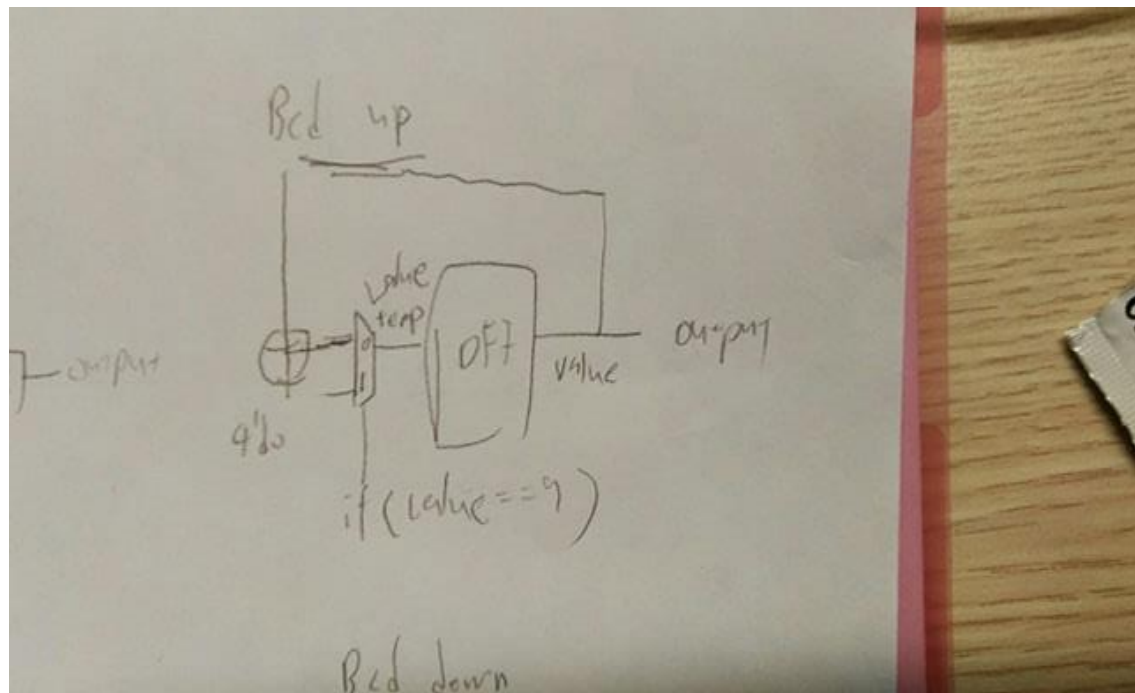 Bcd up
value
temp
0
1
DFF
output
value
output
4'd0
if (value==9)
Bcd down